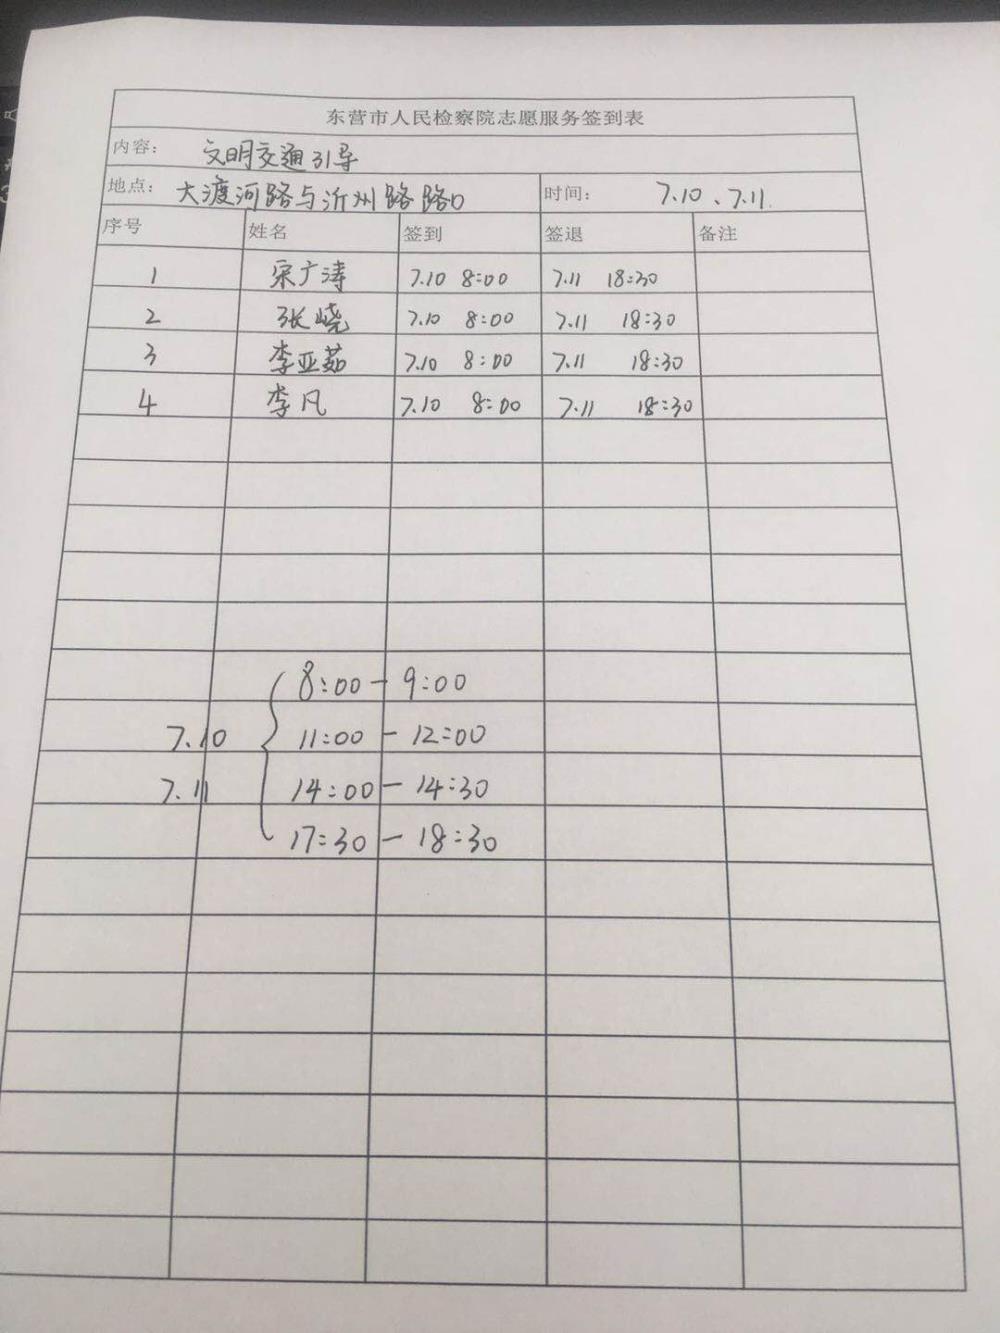 东营市人民检察院志愿服务签到表
内容： 文明交通引导
地点： 大渡河路与沂州路路口 时间： 7.10、7.11.
序号 姓名 签到 签退 备注
1 宋广涛 7.10 8:00 7.11 18:30
2 张峣 7.10 8:00 7.11 18:30
3 李亚茹 7.10 8:00 7.11 18:30
4 李凡 7.10 8:00 7.11 18:30
8:00-9:00
7.10 11:00-12:00
7.11 14:00-14:30
17:30-18:30